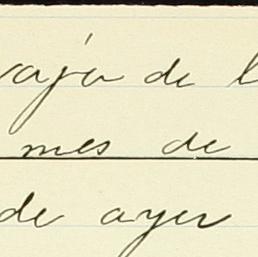 de l
mes de
de ayer